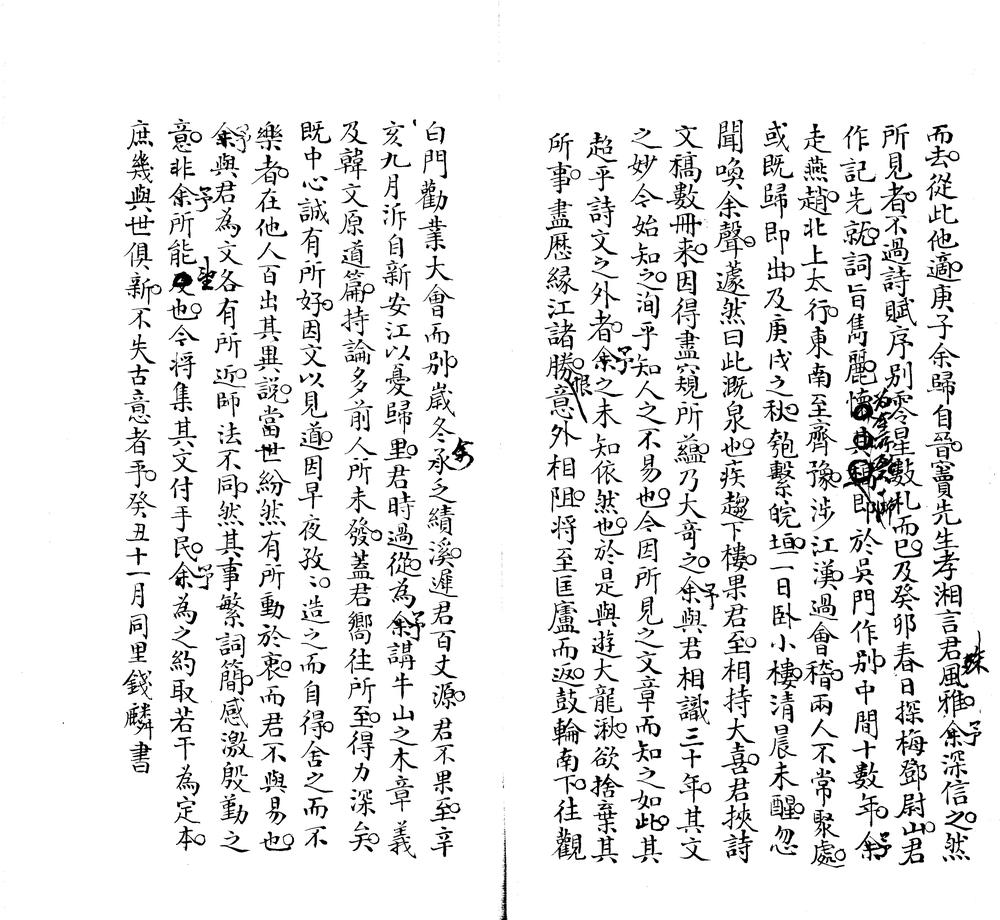 而去從此他適庚子余歸自晉竇先生孝湘言君風雅殊余予深信之然
所見者不過詩賦序別零星數札而已及癸卯春日探梅鄧尉山君
作記先就詞旨雋麗懷即於吳門作別中間十數年余予
走燕趙北上太行東南至齊豫涉江漢過會稽兩人不常聚處
或既歸即出及庚戌之秋匏繫皖垣一日卧小樓清晨未醒忽
聞喚余聲蘧然曰此溉泉也疾趨下樓果君至相持大喜君挾詩
文稿數冊来因得盡窺所蘊乃大奇之余予與君相識三十年其文
之妙今始知之洵乎知人之不易也今因所見之文章而知之如此其
超乎詩文之外者余予之未知依然也於是與遊大龍湫欲捨棄其
所事盡歷緣江諸勝恨意外相阻將至匡廬而返鼓輪南下往觀
白門勸業大會而別歲冬余承乏績溪遲君百丈源君不果至辛
亥九月泝自新安江以憂歸里君時過從為余予講牛山之木章義
及韓文原道篇持論多前人所未發蓋君嚮往所至得力深矣
既中心誠有所好因文以見道因早夜孜〻造之而自得舍之而不
樂者在他人百出其異說當世紛然有所動於衷而君不與易也
余予與君為文各有所近師法不同然其事繁詞簡感激殷勤之
意非余予所能望也今將集其文付手民余予為之約取若干為定本
庶幾與世俱新不失古意者乎癸丑十一月同里錢麟書